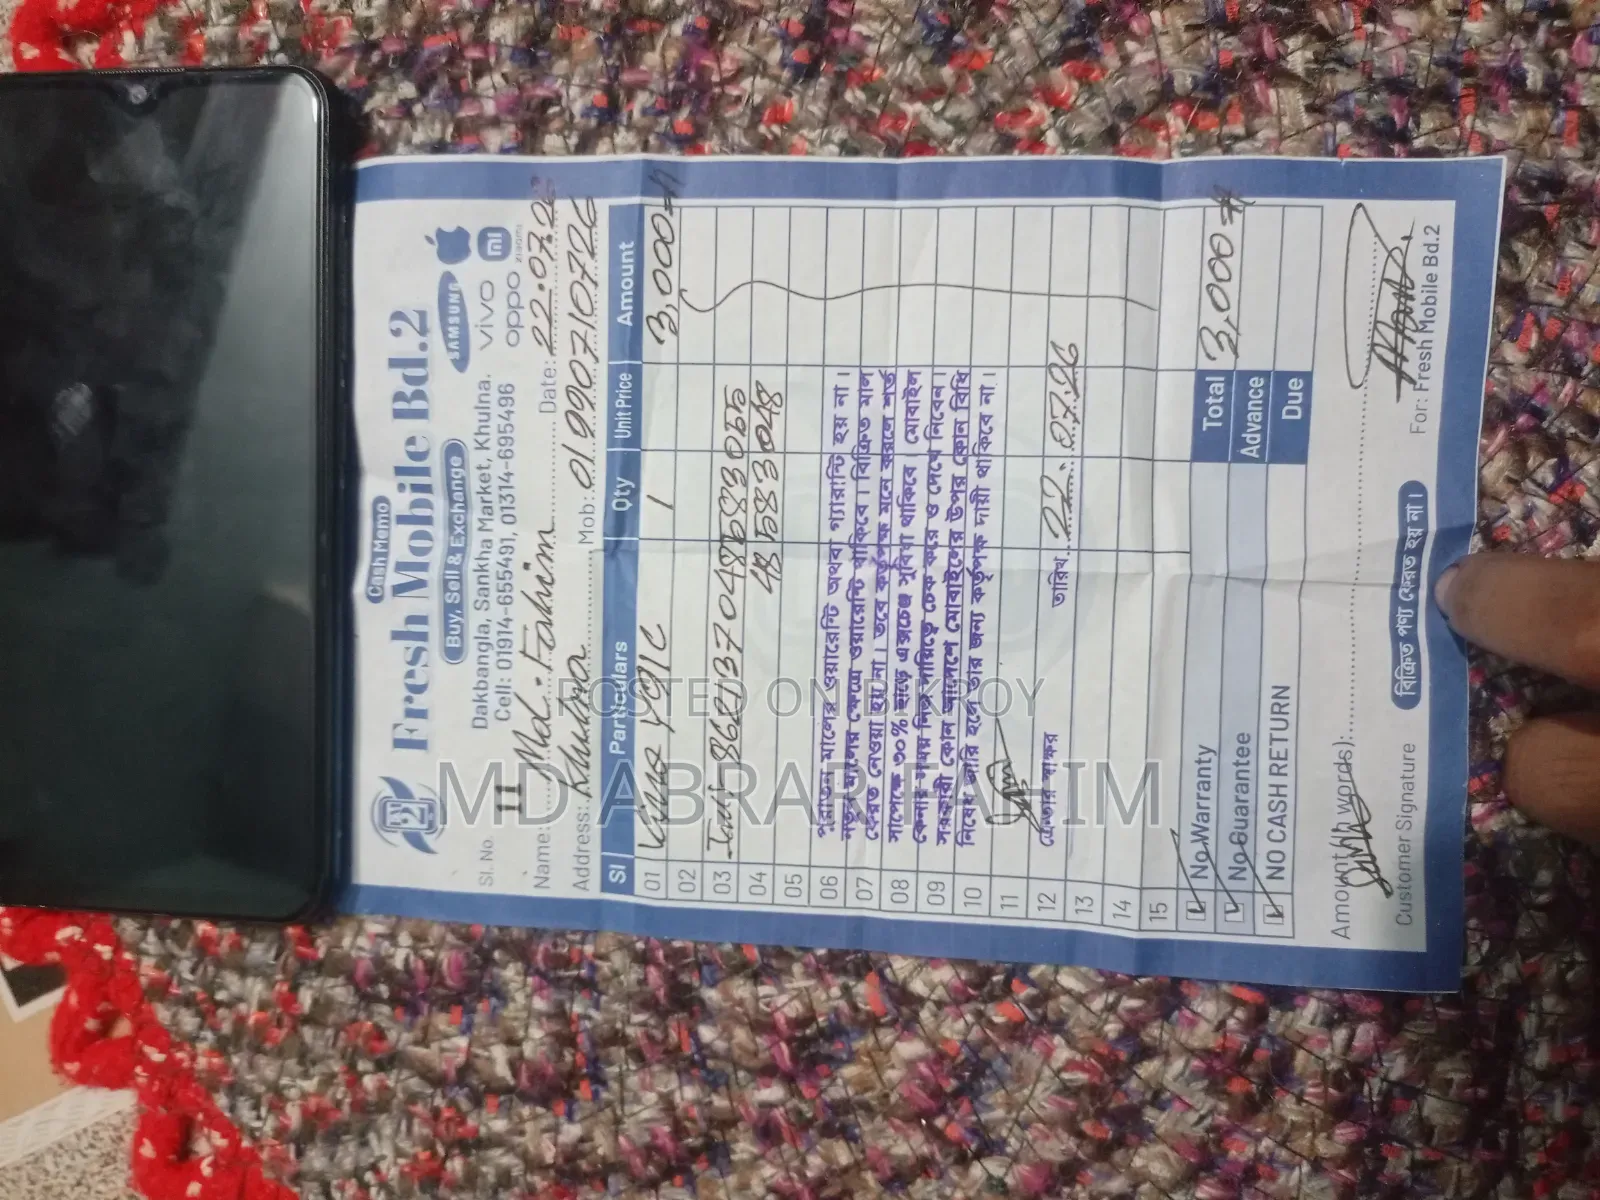 Cash Memo
Fresh Mobile Bd.2
Buy, Sell & Exchange
SAMSUNG
vivo
oppo
mi
xiaomi
Dakbangla, Sankha Market, Khulna.
Cell: 01914-655491, 01314-695496
Sl. No. 11
Name: Md. Fahim Date: 22.07.26
Address: Khulna Mob: 01990710726
Sl Particulars Qty Unit Price Amount
01 Vivo Y91C 1 3,000
02
03
04
05
06 পুরাতন মালের ওয়ারেন্টি অথবা গ্যারান্টি হয় না।
07 নতুন মালের ক্ষেত্রে ওয়ারেন্টি থাকিবে। বিক্রিত মাল
08 ফেরত নেওয়া হয় না। তবে কর্তৃপক্ষ মনে করলে শর্ত
সাপেক্ষে ৩০% হারে এক্সচেঞ্জ সুবিধা থাকিবে। মোবাইল
09 কেনার সময় নিজ দায়িত্বে চেক করে ও দেখে নিবেন।
সরকারী কোন আদেশে মোবাইলের উপর কোন বিধি
10 নিষেধ জারি হলে তার জন্য কর্তৃপক্ষ দায়ী থাকিবে না।
11
12 ক্রেতার স্বাক্ষর তারিখ 22.07.26
13
14
15
No Warranty Total 3,000
No Guarantee Advance
NO CASH RETURN Due
Amount In words):
Customer Signature
বিক্রিত পণ্য ফেরত হয় না।
For: Fresh Mobile Bd.2
POSTED ON BIKROY
MD ABRAR FAHIM